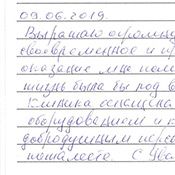 09.06.2019.
Выражаю огромну
своевременное и пр
оказание мне пом
жизнь была бы под
Клиника оснащена
оборудованием и к
добродушным перс
пожалеете. С Ува